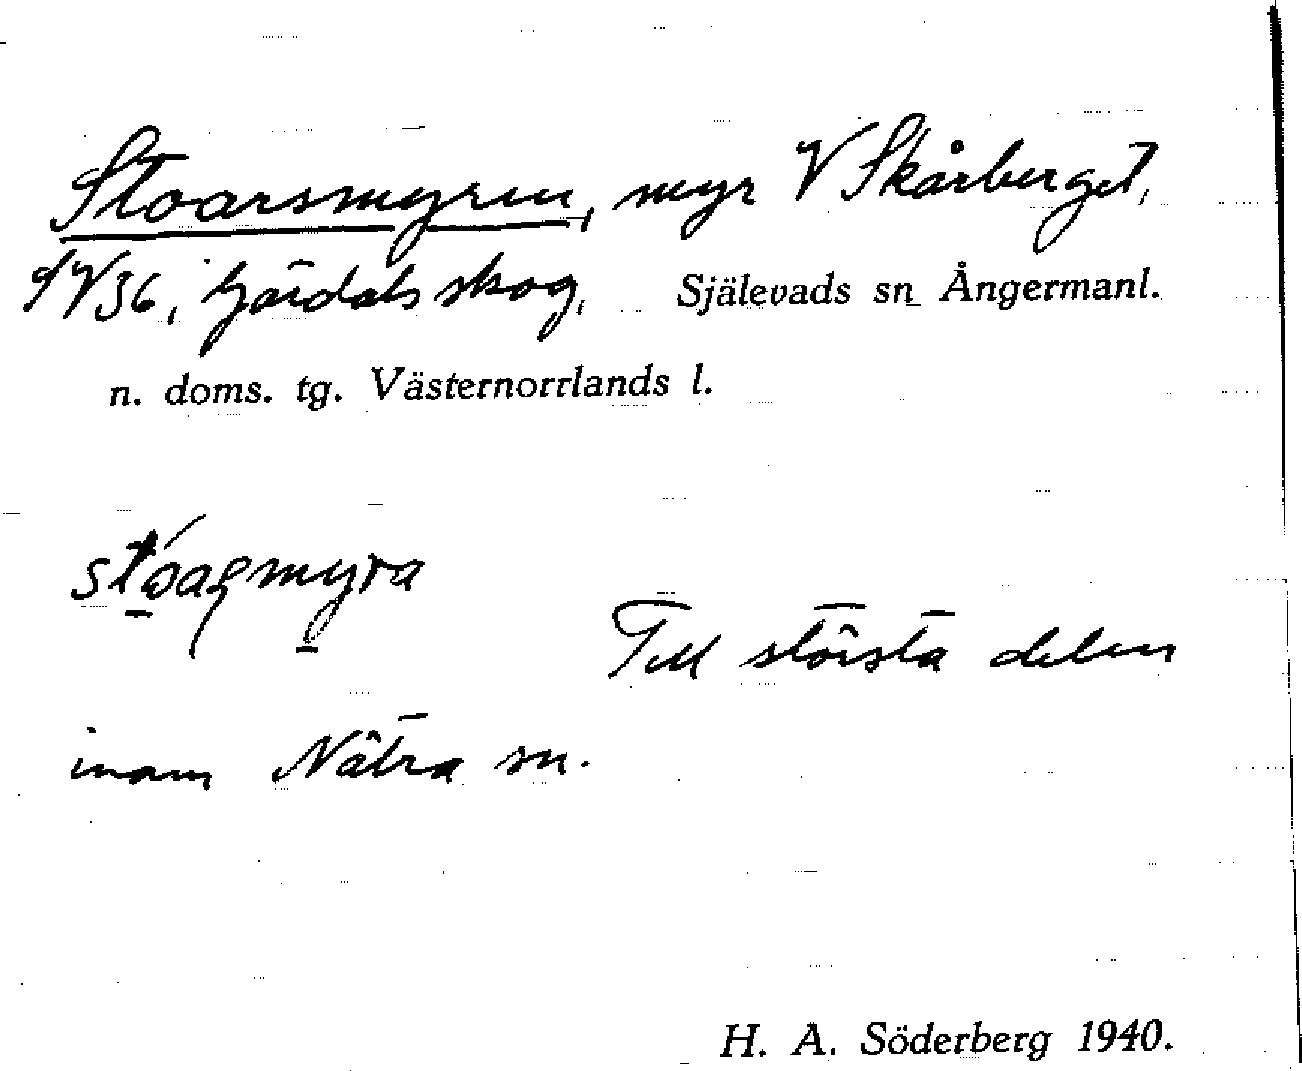 Stoarsmyren, myr V Skårberget,
d V 36, Gärdals skog, Själevads sn Ångermanl.
n. doms. tg. Västernorrlands l.
Till största delen
inom Nätra sn.
H. A. Söderberg 1940.